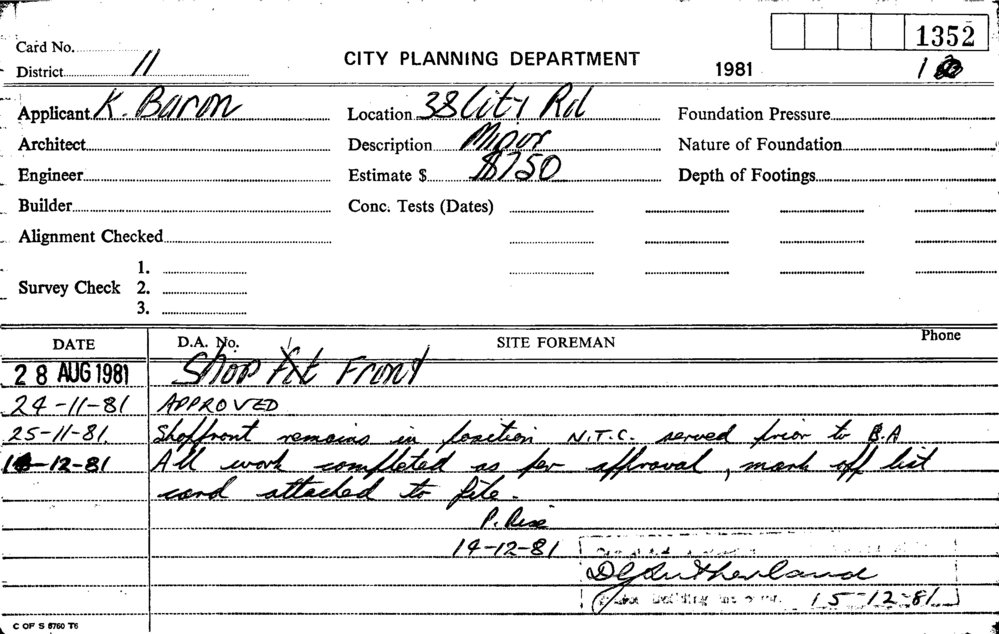 1352
Card No.
District 11 CITY PLANNING DEPARTMENT 1981
Applicant K. Baron Location 38 City Rd Foundation Pressure
Architect Description Minor Nature of Foundation
Engineer Estimate $ $750 Depth of Footings
Builder Conc. Tests (Dates)
Alignment Checked
1.
Survey Check 2.
3.
DATE D.A. No. SITE FOREMAN Phone
28 AUG 1981 Shop Front
24-11-81 APPROVED
25-11-81 Shopfront remains in position N.T.C. served prior to B.A
14-12-81 All work completed as per approval, mark off list
card attached to file.
P.
14-12-81
DGSutherland
Building 15-12-81
C OF S 6760 T6